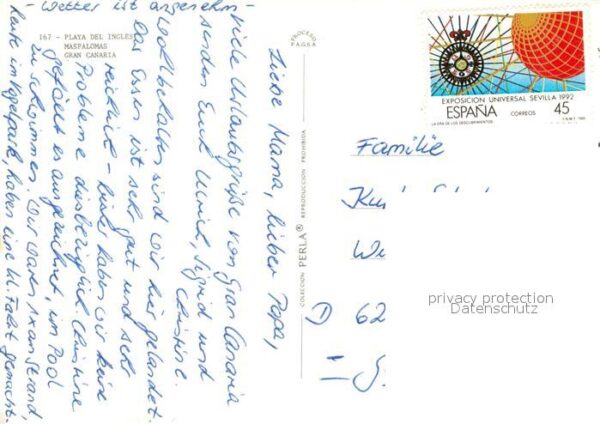 167 - PLAYA DEL INGLES
MASPALOMAS
GRAN CANARIA
PROCESO
FAGRA
Liebe Mama, lieber Papa,
viele Urlaubsgrüße von Gran Canaria
senden Euch Ulrich, Sigrid und
Christine.
Wohlbehalten sind wir hier gelandet.
Das Essen ist sehr gut und sehr
reichlich - bisher haben wir keine
Probleme diesbezüglich. Christine
gefällt es ausgezeichnet, im Pool
zu schwimmen. Wir waren am Strand
heute im Vogelpark, haben eine kl. Fahrt gemacht.
- Wetter ist angenehm -
COLECCION PERLA® REPRODUCCION PROHIBIDA
EXPOSICION UNIVERSAL SEVILLA 1992
ESPAÑA CORREOS 45
LA ERA DE LOS DESCUBRIMIENTOS
Familie
D 62
privacy protection
Datenschutz